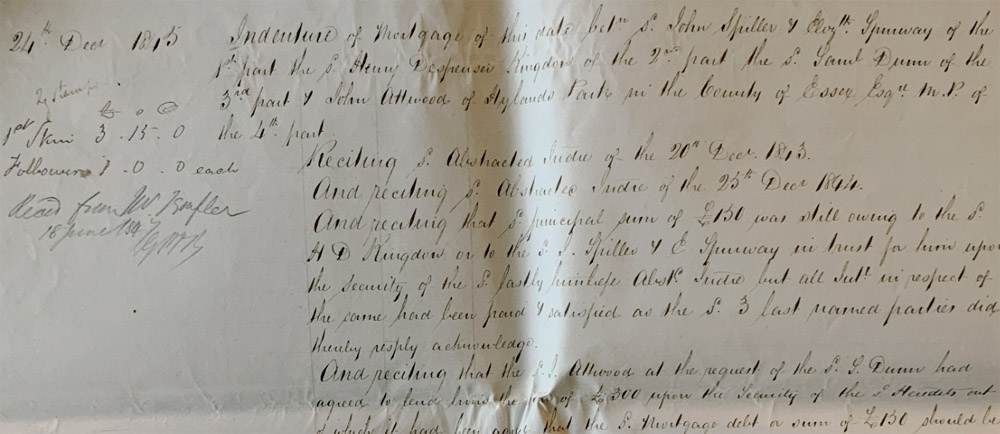 24th Decr 1845
Indenture of Mortgage of this date betn sd John Spiller & Elizth Spurway of the
1st part the sd Henry Despenser Kingdon of the 2nd part the sd Saml Dunn of the
3rd part & John Attwood of Hylands Park in the County of Essex Esqre M.P. of
the 4th part.
2 stamps
£ s d
1st Skin 3 . 15 . 0
Followers 1 . 0 . 0 each
Recd from Mr
18 June
Reciting sd Abstracted Indre of the 20th Decr 1843.
And reciting sd Abstracted Indre of the 25th Decr 1844.
And reciting that sd principal sum of £150 was still owing to the sd
H D Kingdon or to the sd J. Spiller & E Spurway in trust for him upon
the security of the sd lastly hinbefe Abstd Indre but all Intt in respect of
the same had been paid & satisfied as the sd 3 last named parties did
thereby resply acknowledge.
And reciting that the sd J. Attwood at the request of the sd S. Dunn had
agreed to lend him the sum of £300 upon the Security of the sd Heredits out
of which it had been agreed that the sd Mortgage debt or sum of £150 should be